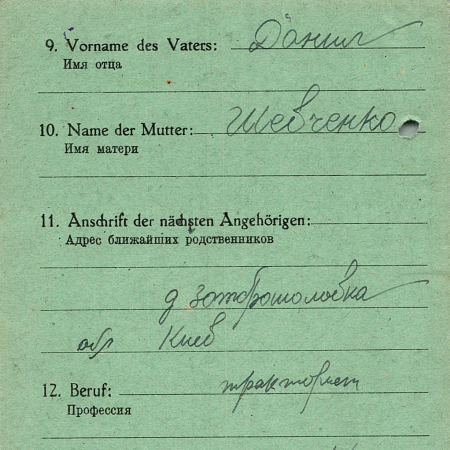 9. Vorname des Vaters: Данил
Имя отца
10. Name der Mutter: Шевченко
Имя матери
11. Anschrift der nächsten Angehörigen:
Адрес ближайших родственников
д
обл Киев
12. Beruf: тракторист
Профессия